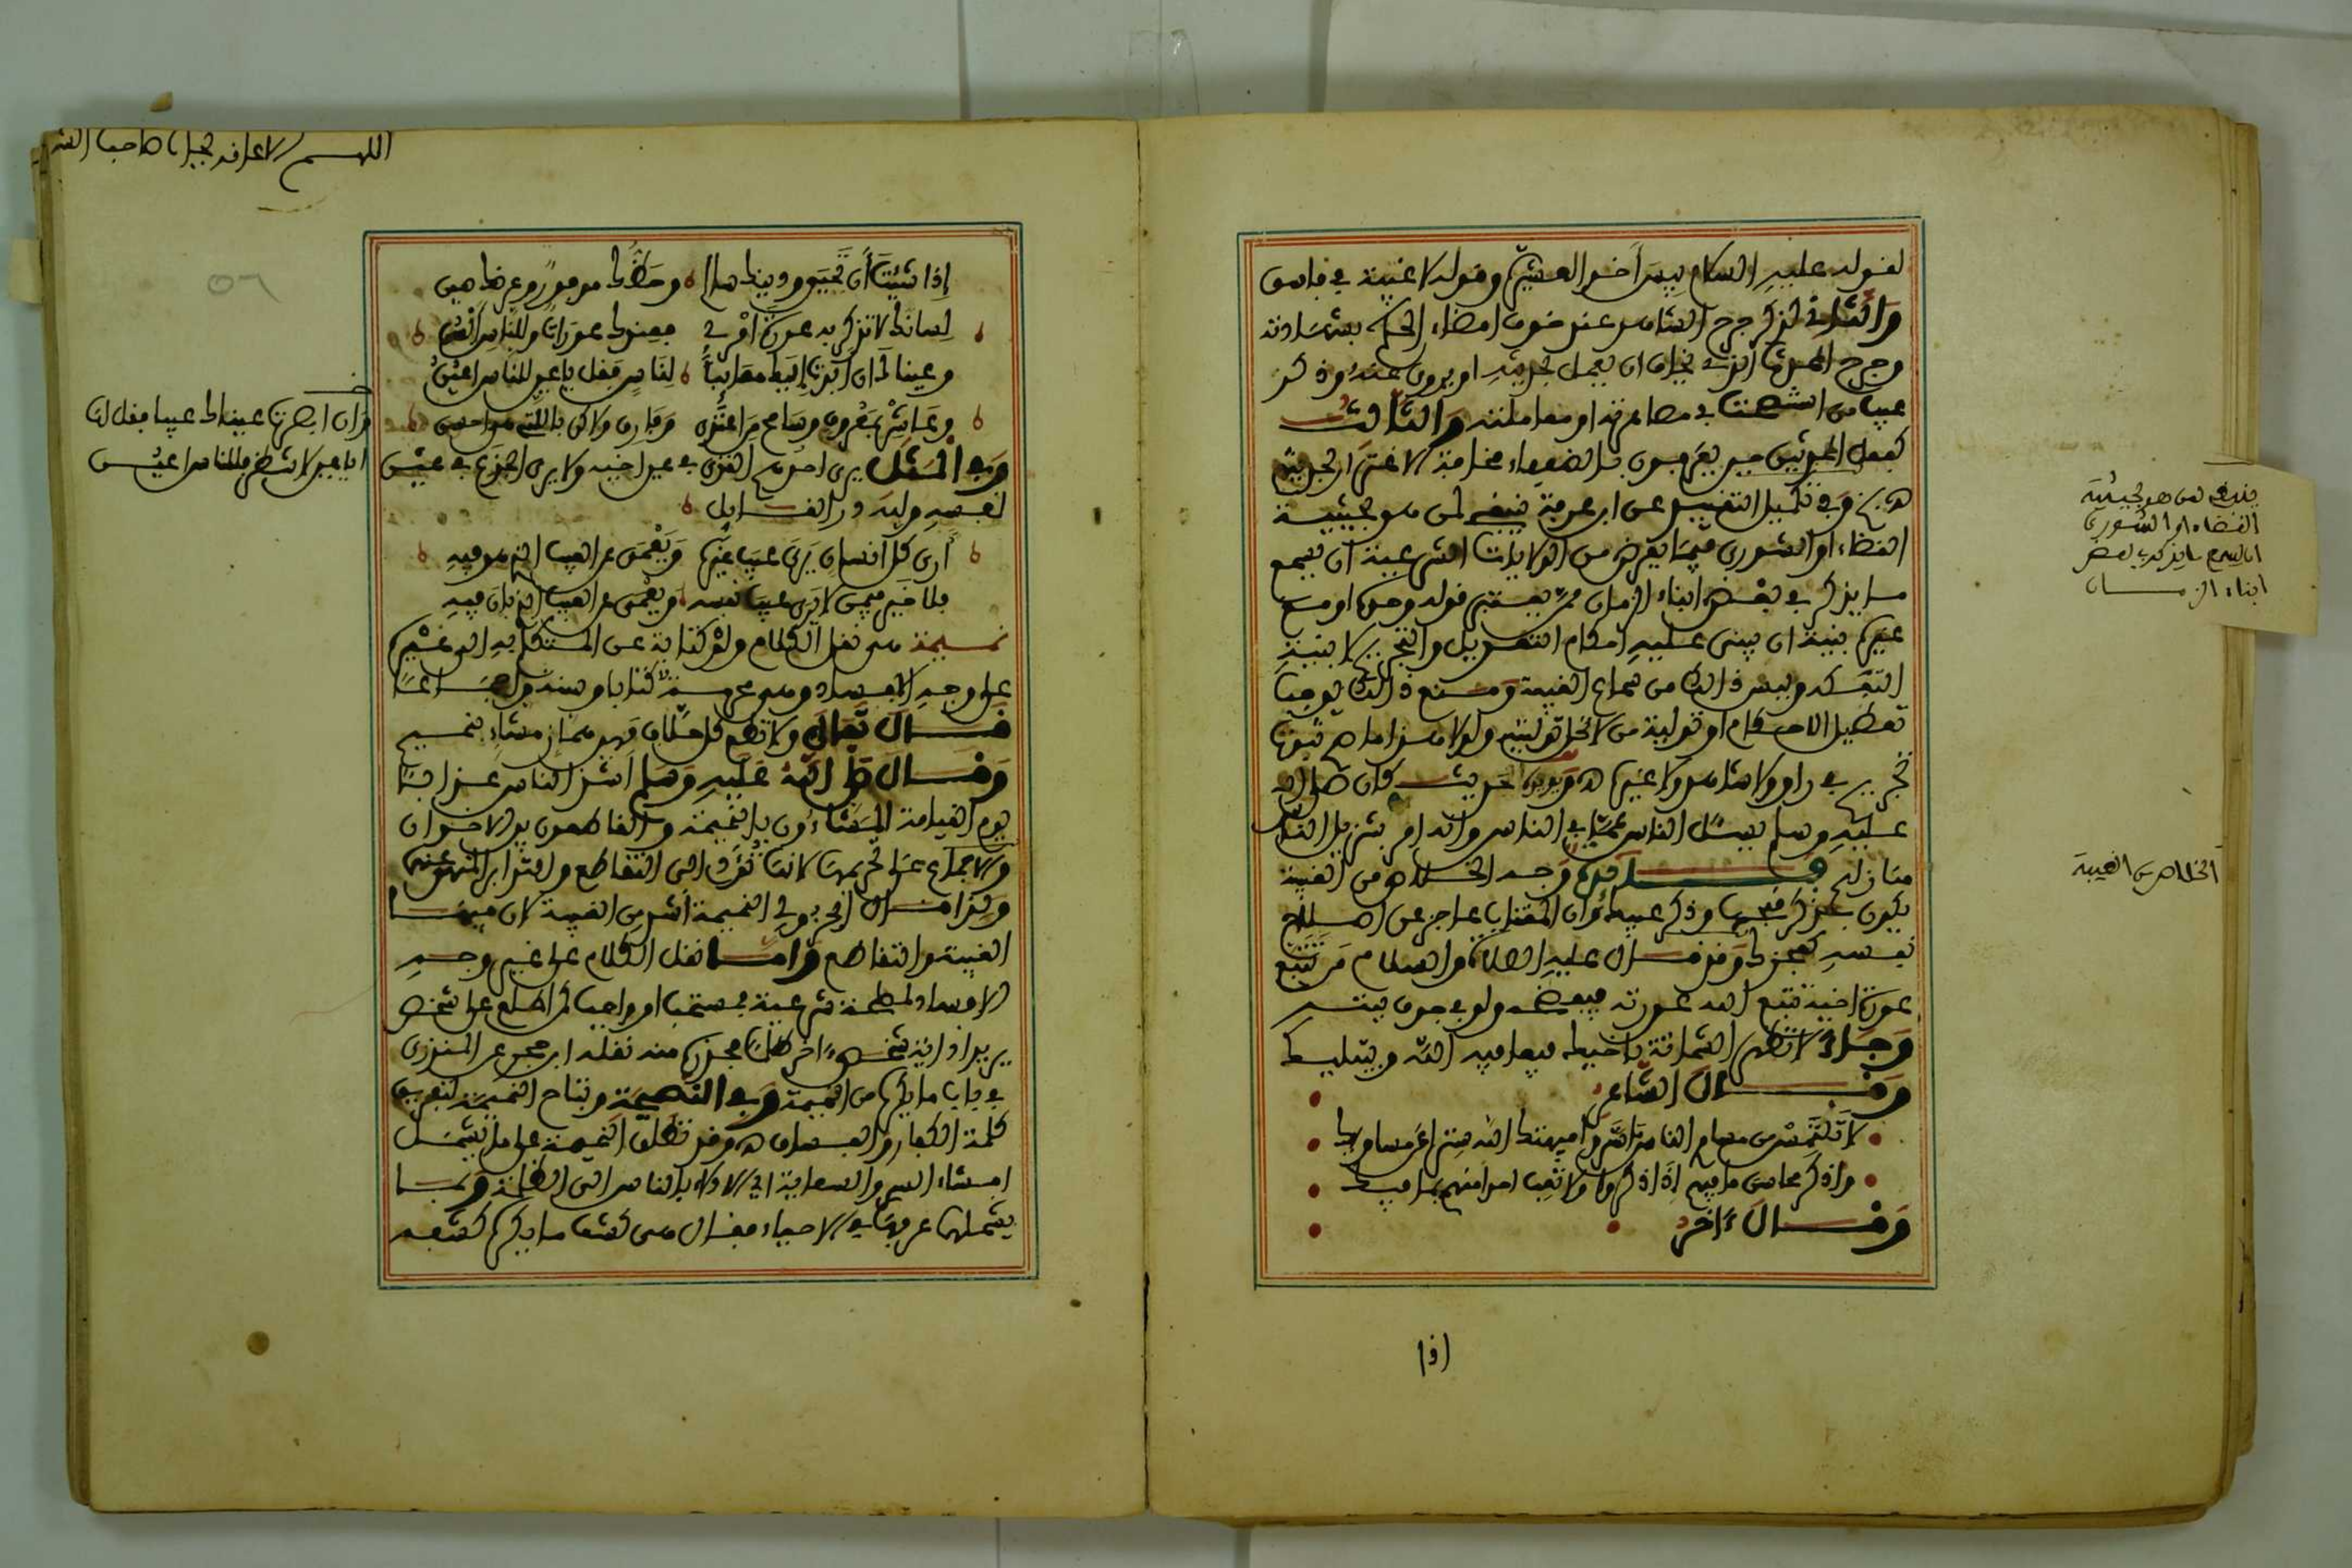 لقوله عليه السلام بيس أخو العشيرة وقوله لا غيبة في فاسق
والثاني كذكر جرح الشاهد عند خوف امضاء الحكم بشهادته
وجرح المحدث الذي يخاف ان يعمل بحديثه او يروى عنه وذكر
عيب من استشهدت في مصاهرته او معاملته والثالث
كفعل المحدثين حين يعرفون بالضعفاء مخافة الاغترار بحديثهم
وفي تكميل التقييد عن ابن عرفة ينبغي لمن هو بحيثية
القضاء او الشورى فيما يعرض من الولايات الشرعية ان يسمع
ما يذكر في بعض ابناء الزمان ممن يعتبر قوله وحده او مع
غيره بنية ان يبنى عليه احكام التعديل والتجريح لا بنية
التفكه وليس ذالك من سماع الغيبة ومنع ذالك يوجب
تعطيل الاحكام او تولية من لا تحل توليته ولولا هذا ما صح ثبوت
تجريح في راو ولا شاهد ولا غيرهما وفي حديث كان صلى الله
عليه وسلم يسئل الناس عما في الناس وانه امر بتنزيل الناس
منازلهم وجه الخلاص من الغيبة
يكون بتذكر قبحها وذكر عيبك وان المغتاب عاجز عن اصلاح
نفسه كعجزك وقد قال عليه الصلاة والسلام من تتبع
عورة اخيه تتبع الله عورته فيفضحه ولو في جوف بيته
وجاء لا تظهر الشماتة باخيك فيعافيه الله ويبتليك
وقال الشاعر
لا تلتمس من مساوي الناس ما ستروا فيهتك الله سترا عن مساويكا
واذكر محاسن ما فيهم إذا ذكروا ولا تعب احدا منهم بما فيكا
وقال ءاخر
ينبغي لمن هو بحيثية
القضاء او الشورى
ان يسمع ما يذكر في بعض
ابناء الزمان
الخلاص من الغيبة
اذا
اللهم
إذا شئت أن تحيى ودينك سالم وحظك موفور وعرضك صين
لسانك لا تذكر به عورة امرئ فعندك عورات وللناس ألسن
وعينك ان ابدت إليك معايبا لناس فقل يا عين للناس اعين
وعاشر بمعروف وسامح من اعتدى وفارق ولاكن بالتي هي احسن
وفي المثل يرى احدكم القذى في عين اخيه ولا يرى الجذع في عين
نفسه ولله در القايل
أرى كل انسان يرى عيب غيره ويعمى عن العيب الذي هو فيه
فلا خير فيمن لا يرى عيب نفسه ويعمى عن العيب الذي بان فيه
نميمة هي نقل الكلام ولو كتابة عن المتكلم به الى غيره
على وجه الافساد وهي محرمة كتابا وسنة واجماعا
قال تعالى ولا تطع كل حلاف مهين هماز مشاء بنميم
وقال صلى الله عليه وسلم اشد الناس عذابا
يوم القيامة المشاءون بالنميمة والقاطعون بين الاخوان
والاجماع على تحريمها لانها تؤدي الى التقاطع والتدابر المنهي عنه
ولذا قال الجزولي النميمة أشد من الغيبة لان فيها
الغيبة والتقاطع وأما نقل الكلام على غير وجه
الافساد لمصلحة شرعية فمستحب او واجب كمن اطلع على شخص
يريد اذاية شخص ءاخر ظلما فحذره منه نقله ابن حجر عن المنذري
في باب ما يكره من النميمة وفي النصيحة وتباح النميمة لتفريق
كلمة الكفار والفساق وقد تطلق النميمة على ما يشمل
افشاء السر والسعاية اي الادلاء بالناس الى الظلمة وبما
يشملهما عرفها في الاحياء فقال هي كشف ما يكره كشفه
وان ابصرت عيناك عيبا فقل لها
ايا عين لا تنظر فللناس اعين
٥٦